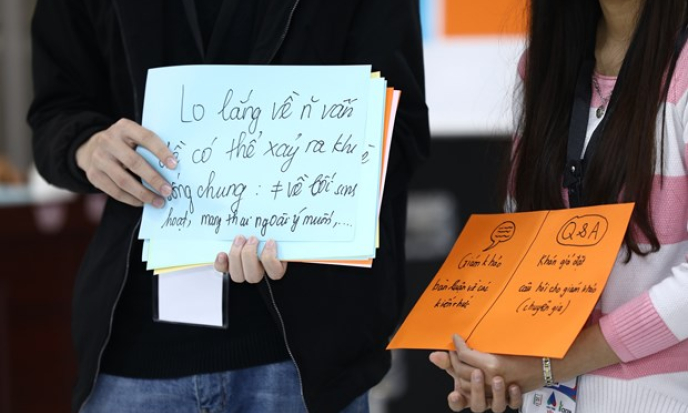 Lo lắng về ñ vấn
đề có thể xảy ra khi
sống chung : ≠ về lối sinh
hoạt, mang thai ngoài ý muốn,....
Giám khảo
bàn luận về các
kiến thức
Q&A
Khán giả đặt
câu hỏi cho giám khảo
(chuyên gia)